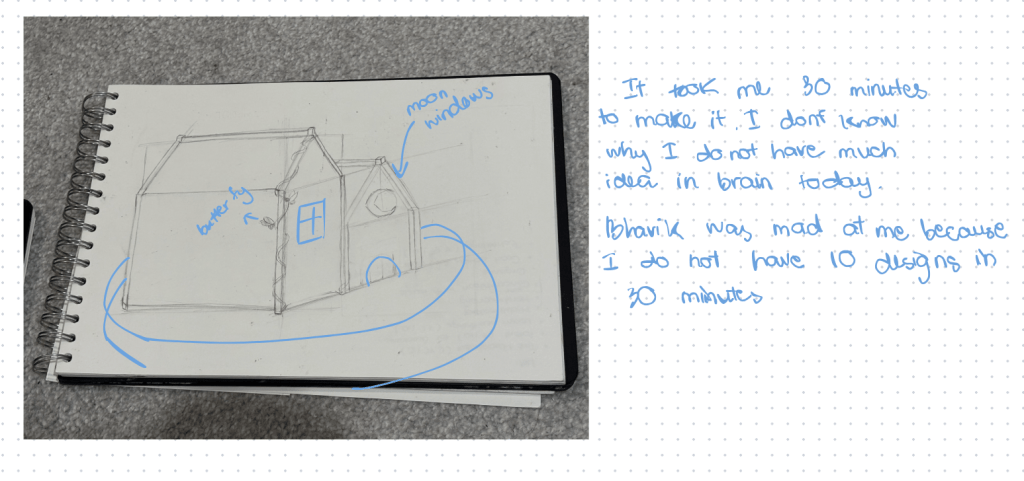 moon
windows
butterfly
It took me 30 minutes
to make it. I don't know
why I do not have much
idea in brain today.
Bharik was mad at me because
I do not have 10 designs in
30 minutes